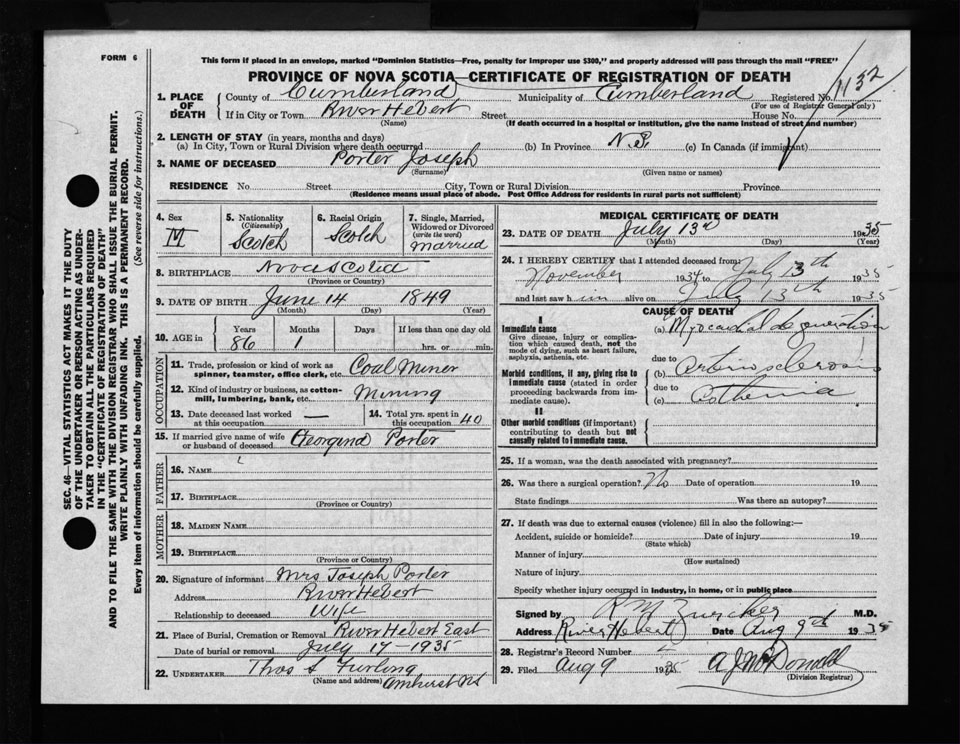 FORM 6
This form if placed in an envelope, marked "Dominion Statistics—Free, penalty for improper use $300," and properly addressed will pass through the mail "FREE"
PROVINCE OF NOVA SCOTIA—CERTIFICATE OF REGISTRATION OF DEATH
1132
1. PLACE OF DEATH
County of Cumberland Municipality of Cumberland Registered No.
(For use of Registrar General only)
If in City or Town River Hebert Street House No.
(Name) (If death occurred in a hospital or institution, give the name instead of street and number)
2. LENGTH OF STAY (in years, months and days)
(a) In City, Town or Rural Division where death occurred (b) In Province N.S. (c) In Canada (if immigrant)
3. NAME OF DECEASED Porter Joseph
(Surname) (Given name or names)
RESIDENCE No. Street City, Town or Rural Division Province
(Residence means usual place of abode. Post Office Address for residents in rural parts not sufficient)
4. Sex
M
5. Nationality
(Citizenship)
Scotch
6. Racial Origin
Scotch
7. Single, Married, Widowed or Divorced
(write the word)
married
8. BIRTHPLACE Nova Scotia
(Province or Country)
9. DATE OF BIRTH June 14 1849
(Month) (Day) (Year)
10. AGE in
Years Months Days If less than one day old
86 1 hrs. or min.
OCCUPATION
11. Trade, profession or kind of work as spinner, teamster, office clerk, etc. Coal Miner
12. Kind of industry or business, as cotton-mill, lumbering, bank, etc. Mining
13. Date deceased last worked at this occupation —
14. Total yrs. spent in this occupation 40
15. If married give name of wife or husband of deceased Georgina Porter
FATHER
16. NAME
17. BIRTHPLACE
(Province or Country)
MOTHER
18. MAIDEN NAME
19. BIRTHPLACE
(Province or Country)
20. Signature of informant Mrs Joseph Porter
Address River Hebert
Relationship to deceased Wife
21. Place of Burial, Cremation or Removal River Hebert East
Date of burial or removal July 17 - 1935
22. UNDERTAKER Thos S Furlong
(Name and address) Amherst NS
MEDICAL CERTIFICATE OF DEATH
23. DATE OF DEATH July 13th 1935
(Month) (Day) (Year)
24. I HEREBY CERTIFY that I attended deceased from:
November 1934 to July 13th 1935
and last saw him alive on July 13th 1935
CAUSE OF DEATH
I
Immediate cause
Give disease, injury or complication which caused death, not the mode of dying, such as heart failure, asphyxia, asthenia, etc.
(a) Myocardial degeneration
due to
Morbid conditions, if any, giving rise to immediate cause (stated in order proceeding backwards from immediate cause).
(b) Arteriosclerosis
due to
(c) Asthenia
II
Other morbid conditions (if important) contributing to death but not causally related to immediate cause.
25. If a woman, was the death associated with pregnancy?
26. Was there a surgical operation? No Date of operation 19
State findings Was there an autopsy?
27. If death was due to external causes (violence) fill in also the following:—
Accident, suicide or homicide? Date of injury 19
(State which)
Manner of injury
(How sustained)
Nature of injury
Specify whether injury occurred in industry, in home, or in public place
Signed by R M Zuercher M.D.
Address River Hebert Date Aug 9th 1935
28. Registrar's Record Number
29. Filed Aug 9 1935 A J McDonald
(Division Registrar)
SEC. 46—VITAL STATISTICS ACT MAKES IT THE DUTY
OF THE UNDERTAKER OR PERSON ACTING AS UNDER-
TAKER TO OBTAIN ALL THE PARTICULARS REQUIRED
IN THE "CERTIFICATE OF REGISTRATION OF DEATH"
AND TO FILE THE SAME WITH THE DIVISION REGISTRAR WHO SHALL ISSUE THE BURIAL PERMIT.
WRITE PLAINLY WITH UNFADING INK. THIS IS A PERMANENT RECORD.
Every item of information should be carefully supplied. (See reverse side for instructions.)